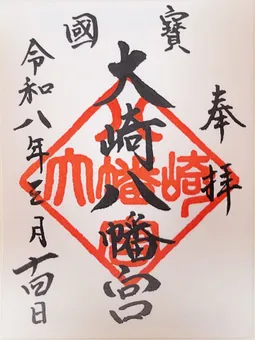 國寳
奉拝
大崎八幡宮
令和八年三月十四日